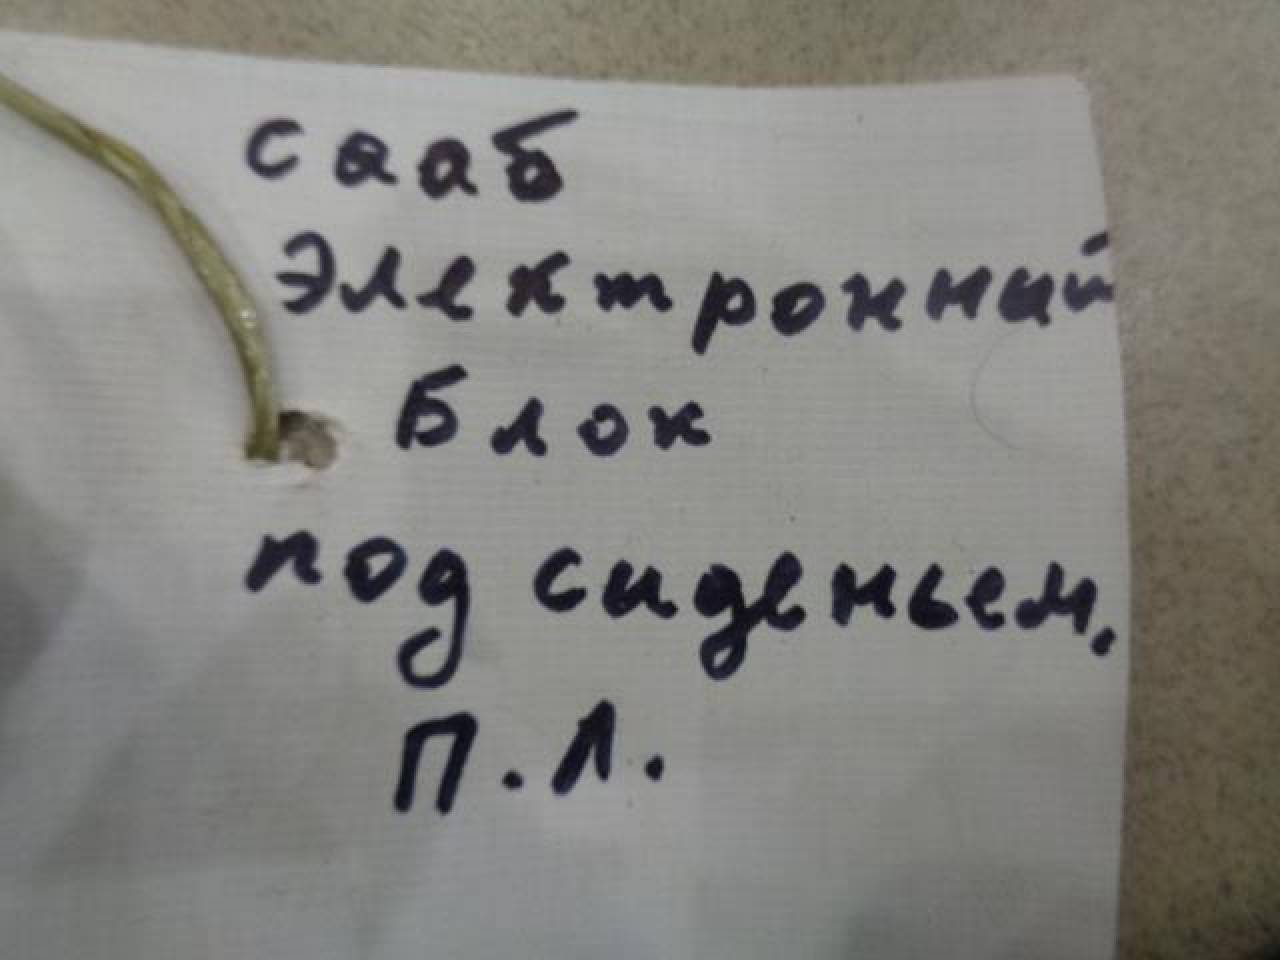 сааб
Электронный
Блок
под сиденьем.
П.Л.